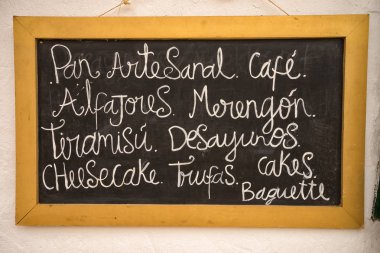 Pan Artesanal. Café.
Alfajores Merengón.
Tiramisú. Desayunos.
Cheesecake. Trufas. Cakes.
Baguette